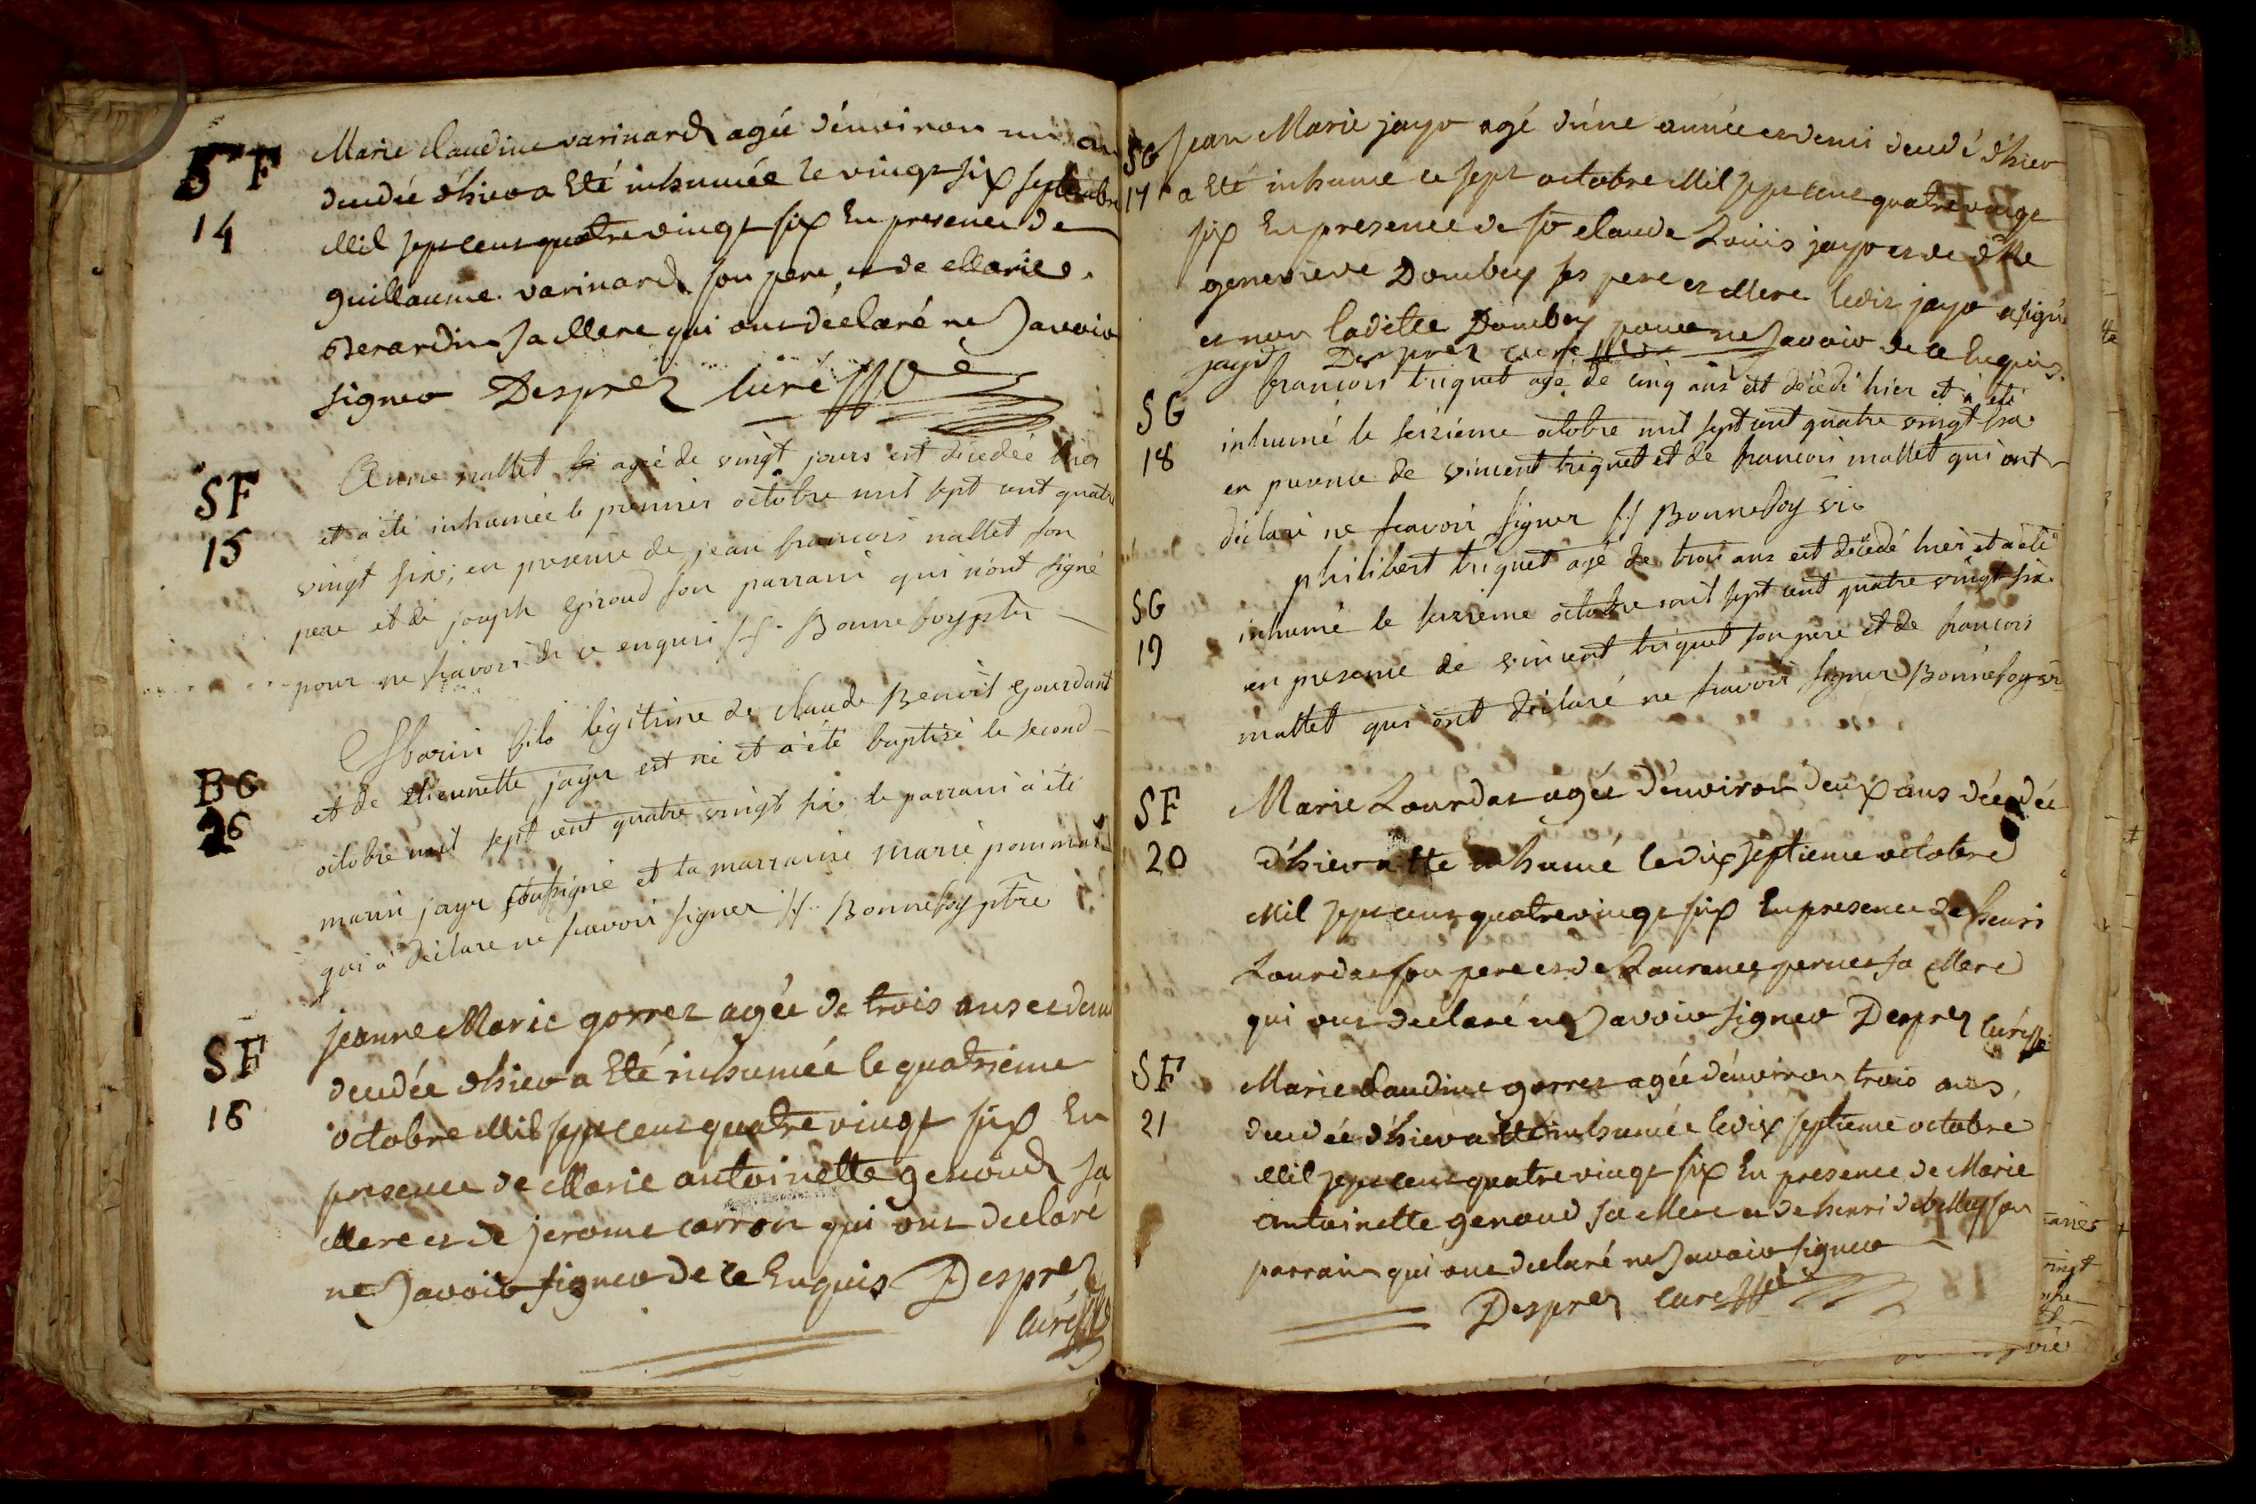 SF
14
Marie Claudine varinard agée d'environ un an
decedée d'hier a Eté inhumée le vingt six septembre
Mil sept cent quatre vingt six En presence de
guillaume varinard son pere, et de Marie
Berardin sa Mere qui ont déclaré ne Savoir
signer Desprez Curé
SF
15
Anne mallet agée de vingt jours est décedée hier
et a été inhumée le premier octobre mil sept cent quatre
vingt six; en presence de jean francois mallet son
pere et de joseph giroud son parrain qui n'ont signé
pour ne scavoir de ce enquri Bonnefoy ptre
BG
26
Marin fils légitime de claude Benoit gourdant
et de étiennette jayr est né et a été baptisé le second
octobre mil sept cent quatre vingt six le parrain a été
marin jayr soussigné et la marraine marie
qui a déclaré ne scavoir signer Bonnefoy ptre
SF
16
jeanne Marie gorrez agée de trois ans et demi
decedée d'hier a Eté inhumée le quatrieme
octobre Mil sept cent quatre vingt six En
presence de Marie antoinette genoud sa
Mere et de jerome carron qui ont declaré
ne Savoir signer de ce Enquis Desprez
Curé
SG
17
Jean Marie jayr agé d'une année et demi decedé d'hier
a Eté inhumé ce sept octobre Mil sept cent quatre vingt
six En presence de sr Claude Louis jayr et de dlle
genevieve Dombey ses pere et Mere ledit jayr a signé
et non ladite Dombey pour ne Savoir de ce Enquis.
jayr Desprez curé
SG
18
francois triquet agé de cinq ans est décédé hier et a été
inhumé le seizième octobre mil sept cent quatre vingt six
en presence de vincent triquet et de francois mallet qui ont
déclaré ne scavoir signer Bonnefoy vic
SG
19
philibert triquet agé de trois ans est décédé hier et a été
inhumé le seizième octobre mil sept cent quatre vingt six
en presence de vincent triquet son pere et de francois
mallet qui ont déclaré ne scavoir signer Bonnefoy vic
SF
20
Marie Lourdat agée d'environ deux ans décedée
d'hier a Eté inhumé le dix septieme octobre
Mil sept cent quatre vingt six En presence de henri
Lourdat son pere et de Laurence pernet sa Mere
qui ont déclaré ne Savoir signer Desprez Curé
SF
21
Marie Claudine gorrez agée d'environ trois ans
decedée d'hier a Eté inhumée le dix septieme octobre
Mil sept cent quatre vingt six En presence de Marie
antoinette genoud sa Mere et de henri son
parrain qui ont declaré ne Savoir signer
Desprez Curé